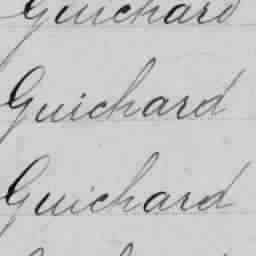 Guichard
Guichard
Guichard